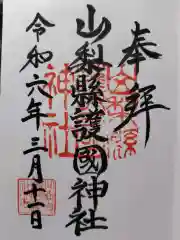 奉拝
山梨縣護國神社
令和六年三月十一日